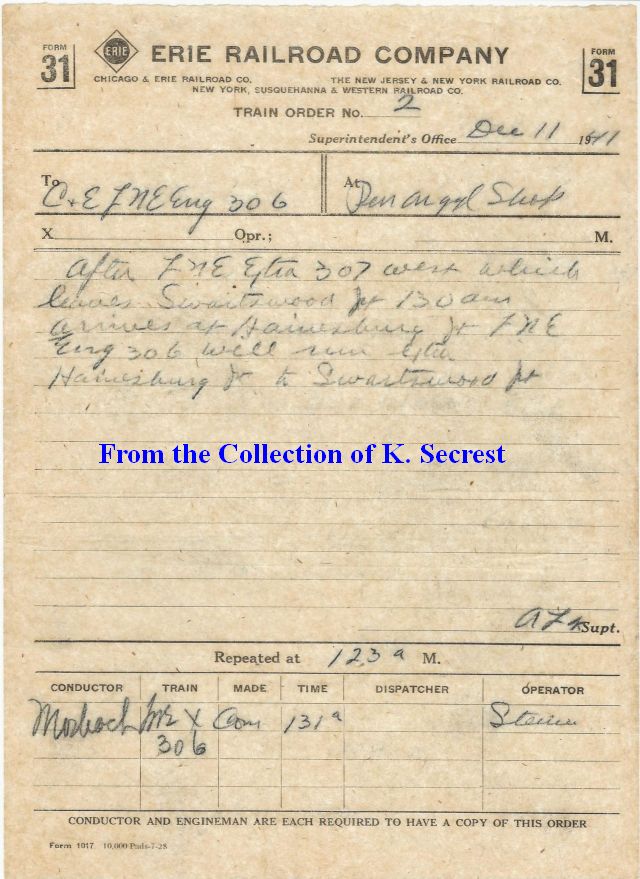 FORM 31
ERIE
ERIE RAILROAD COMPANY
FORM 31
CHICAGO & ERIE RAILROAD CO. THE NEW JERSEY & NEW YORK RAILROAD CO.
NEW YORK, SUSQUEHANNA & WESTERN RAILROAD CO.
TRAIN ORDER No. 2
Superintendent's Office Dec 11 1941
To C&E LNE Eng 306 At Pen Argyl Shop
X Opr.; M.
After LNE Extra 307 west which
leaves Swartswood Jct 130 am
arrives at Hainesburg Jct LNE
Eng 306 will run Extra
Hainesburg Jct to Swartswood Jct
From the Collection of K. Secrest
Supt.
Repeated at 123a M.
CONDUCTOR TRAIN MADE TIME DISPATCHER OPERATOR
Mosbach X Com 131a
306
CONDUCTOR AND ENGINEMAN ARE EACH REQUIRED TO HAVE A COPY OF THIS ORDER
Form 1017 10,000 Pads-7-28